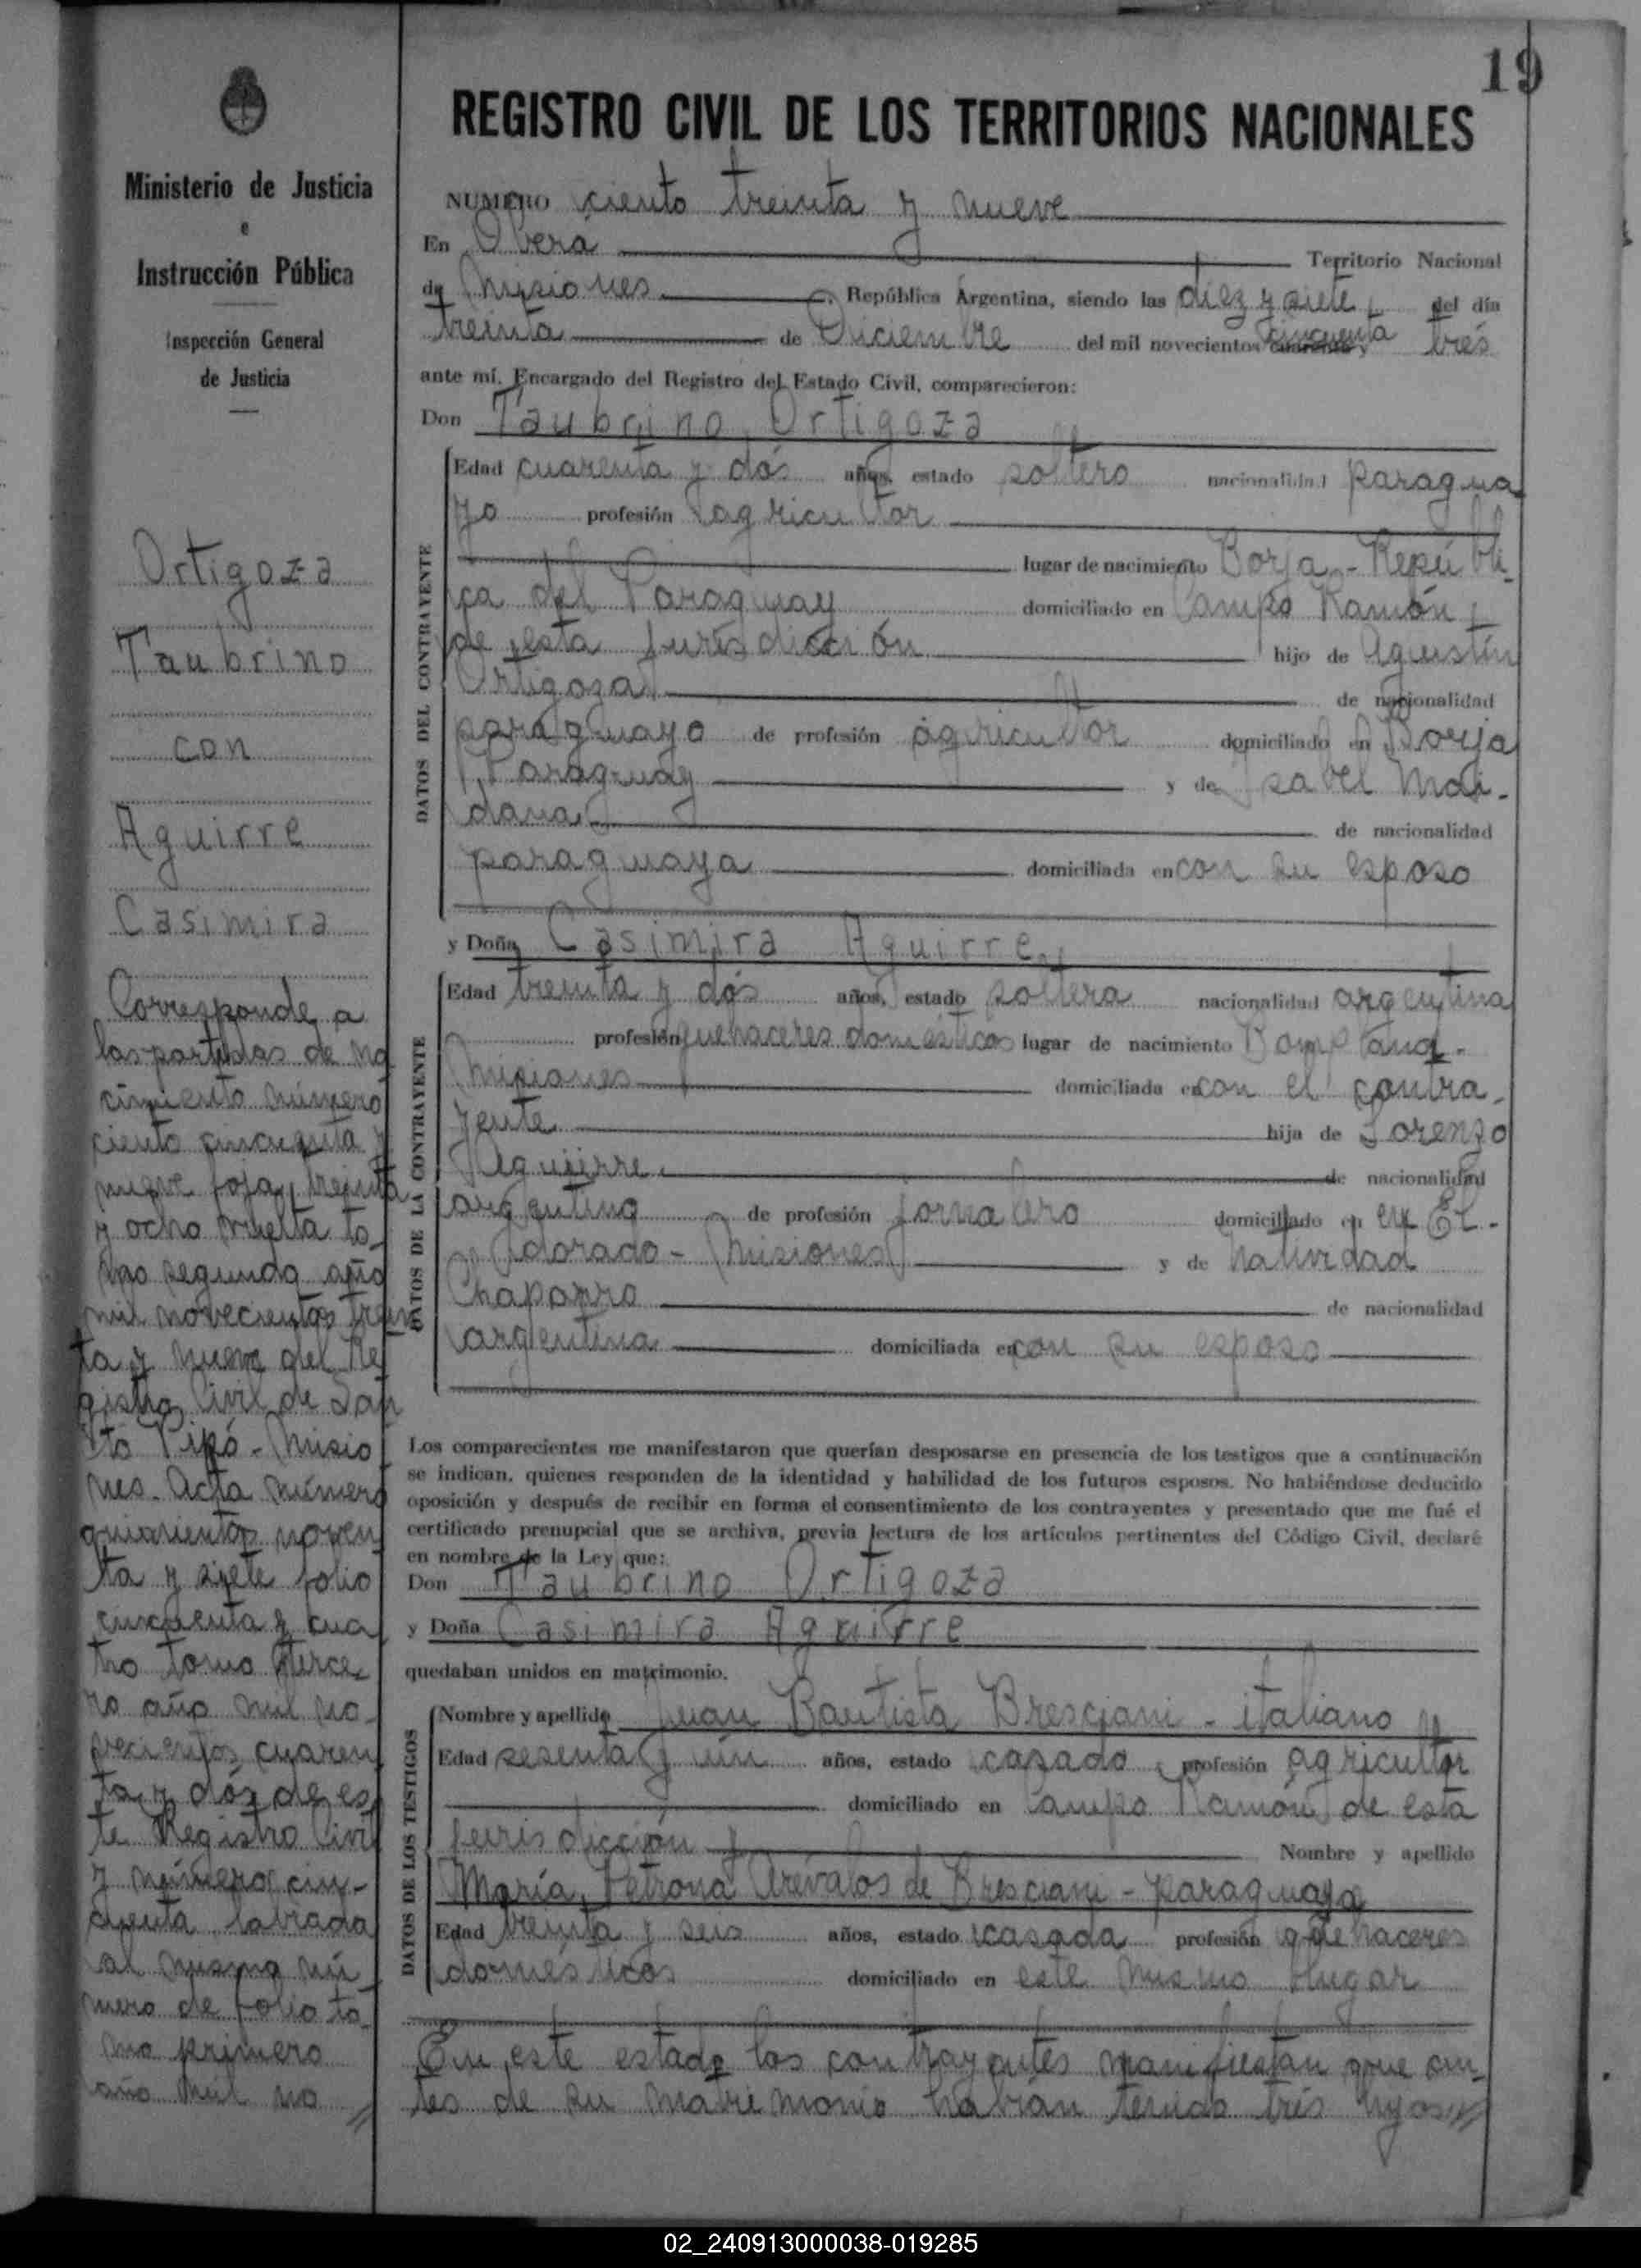 19
Ministerio de Justicia
e
Instrucción Pública
Inspección General
de Justicia
Ortigoza
Taubrino
con
Aguirre
Casimira
Corresponde a
las partidas de na
cimiento número
ciento cincuenta y
nueve foja treinta
y ocho vuelta to-
mo segundo año
mil novecientos trein
ta y nueve del Re
gistro Civil de San
to Pipó - Misio
nes. Acta número
quinientos noven
ta y siete folio
cincuenta y cua
tro tomo terce
ro año mil no-
vecientos cuaren
ta y dós de es
te Registro Civil
y número cin-
cuenta labrada
al mismo nú
mero de folio to-
mo primero
año mil no //
REGISTRO CIVIL DE LOS TERRITORIOS NACIONALES
NUMERO ciento treinta y nueve
En Oberá Territorio Nacional
de Misiones República Argentina, siendo las diez y siete del día
treinta de Diciembre del mil novecientos cuarenta y cincuenta trés
ante mí, Encargado del Registro del Estado Civil, comparecieron:
Don Taubrino Ortigoza
DATOS DEL CONTRAYENTE
Edad cuarenta y dós años, estado soltero nacionalidad paragua
yo profesión agricultor
lugar de nacimiento Borja - Repúbli-
ca del Paraguay domiciliado en Campo Ramón,
de esta jurisdicción hijo de Agustín
Ortigoza de nacionalidad
paraguayo de profesión agricultor domiciliado en Borja
Paraguay y de Isabel Mai-
dana de nacionalidad
paraguaya domiciliada en con su esposo
y Doña Casimira Aguirre
DATOS DE LA CONTRAYENTE
Edad treinta y dós años, estado soltera nacionalidad argentina
profesión quehaceres domésticos lugar de nacimiento Bompland -
Misiones domiciliada en con el contra-
yente hija de Lorenzo
Aguirre de nacionalidad
argentino de profesión jornalero domiciliado en en El -
dorado - Misiones y de Natividad
Chaparro de nacionalidad
argentina domiciliada en con su esposo
Los comparecientes me manifestaron que querían desposarse en presencia de los testigos que a continuación
se indican, quienes responden de la identidad y habilidad de los futuros esposos. No habiéndose deducido
oposición y después de recibir en forma el consentimiento de los contrayentes y presentado que me fué el
certificado prenupcial que se archiva, previa lectura de los artículos pertinentes del Código Civil, declaré
en nombre de la Ley que:
Don Taubrino Ortigoza
y Doña Casimira Aguirre
quedaban unidos en matrimonio.
DATOS DE LOS TESTIGOS
Nombre y apellido Juan Bautista Bresciani - italiano
Edad sesenta y ún años, estado casado profesión agricultor
domiciliado en Campo Ramón de esta
jurisdicción y Nombre y apellido
María Petrona Arévalos de Bresciani - paraguaya
Edad treinta y seis años, estado casada profesión quehaceres
domésticos domiciliado en este mismo lugar
En este estado los contrayentes manifiestan que an-
tes de su matrimonio habían tenido trés hijos //
02_240913000038-019285